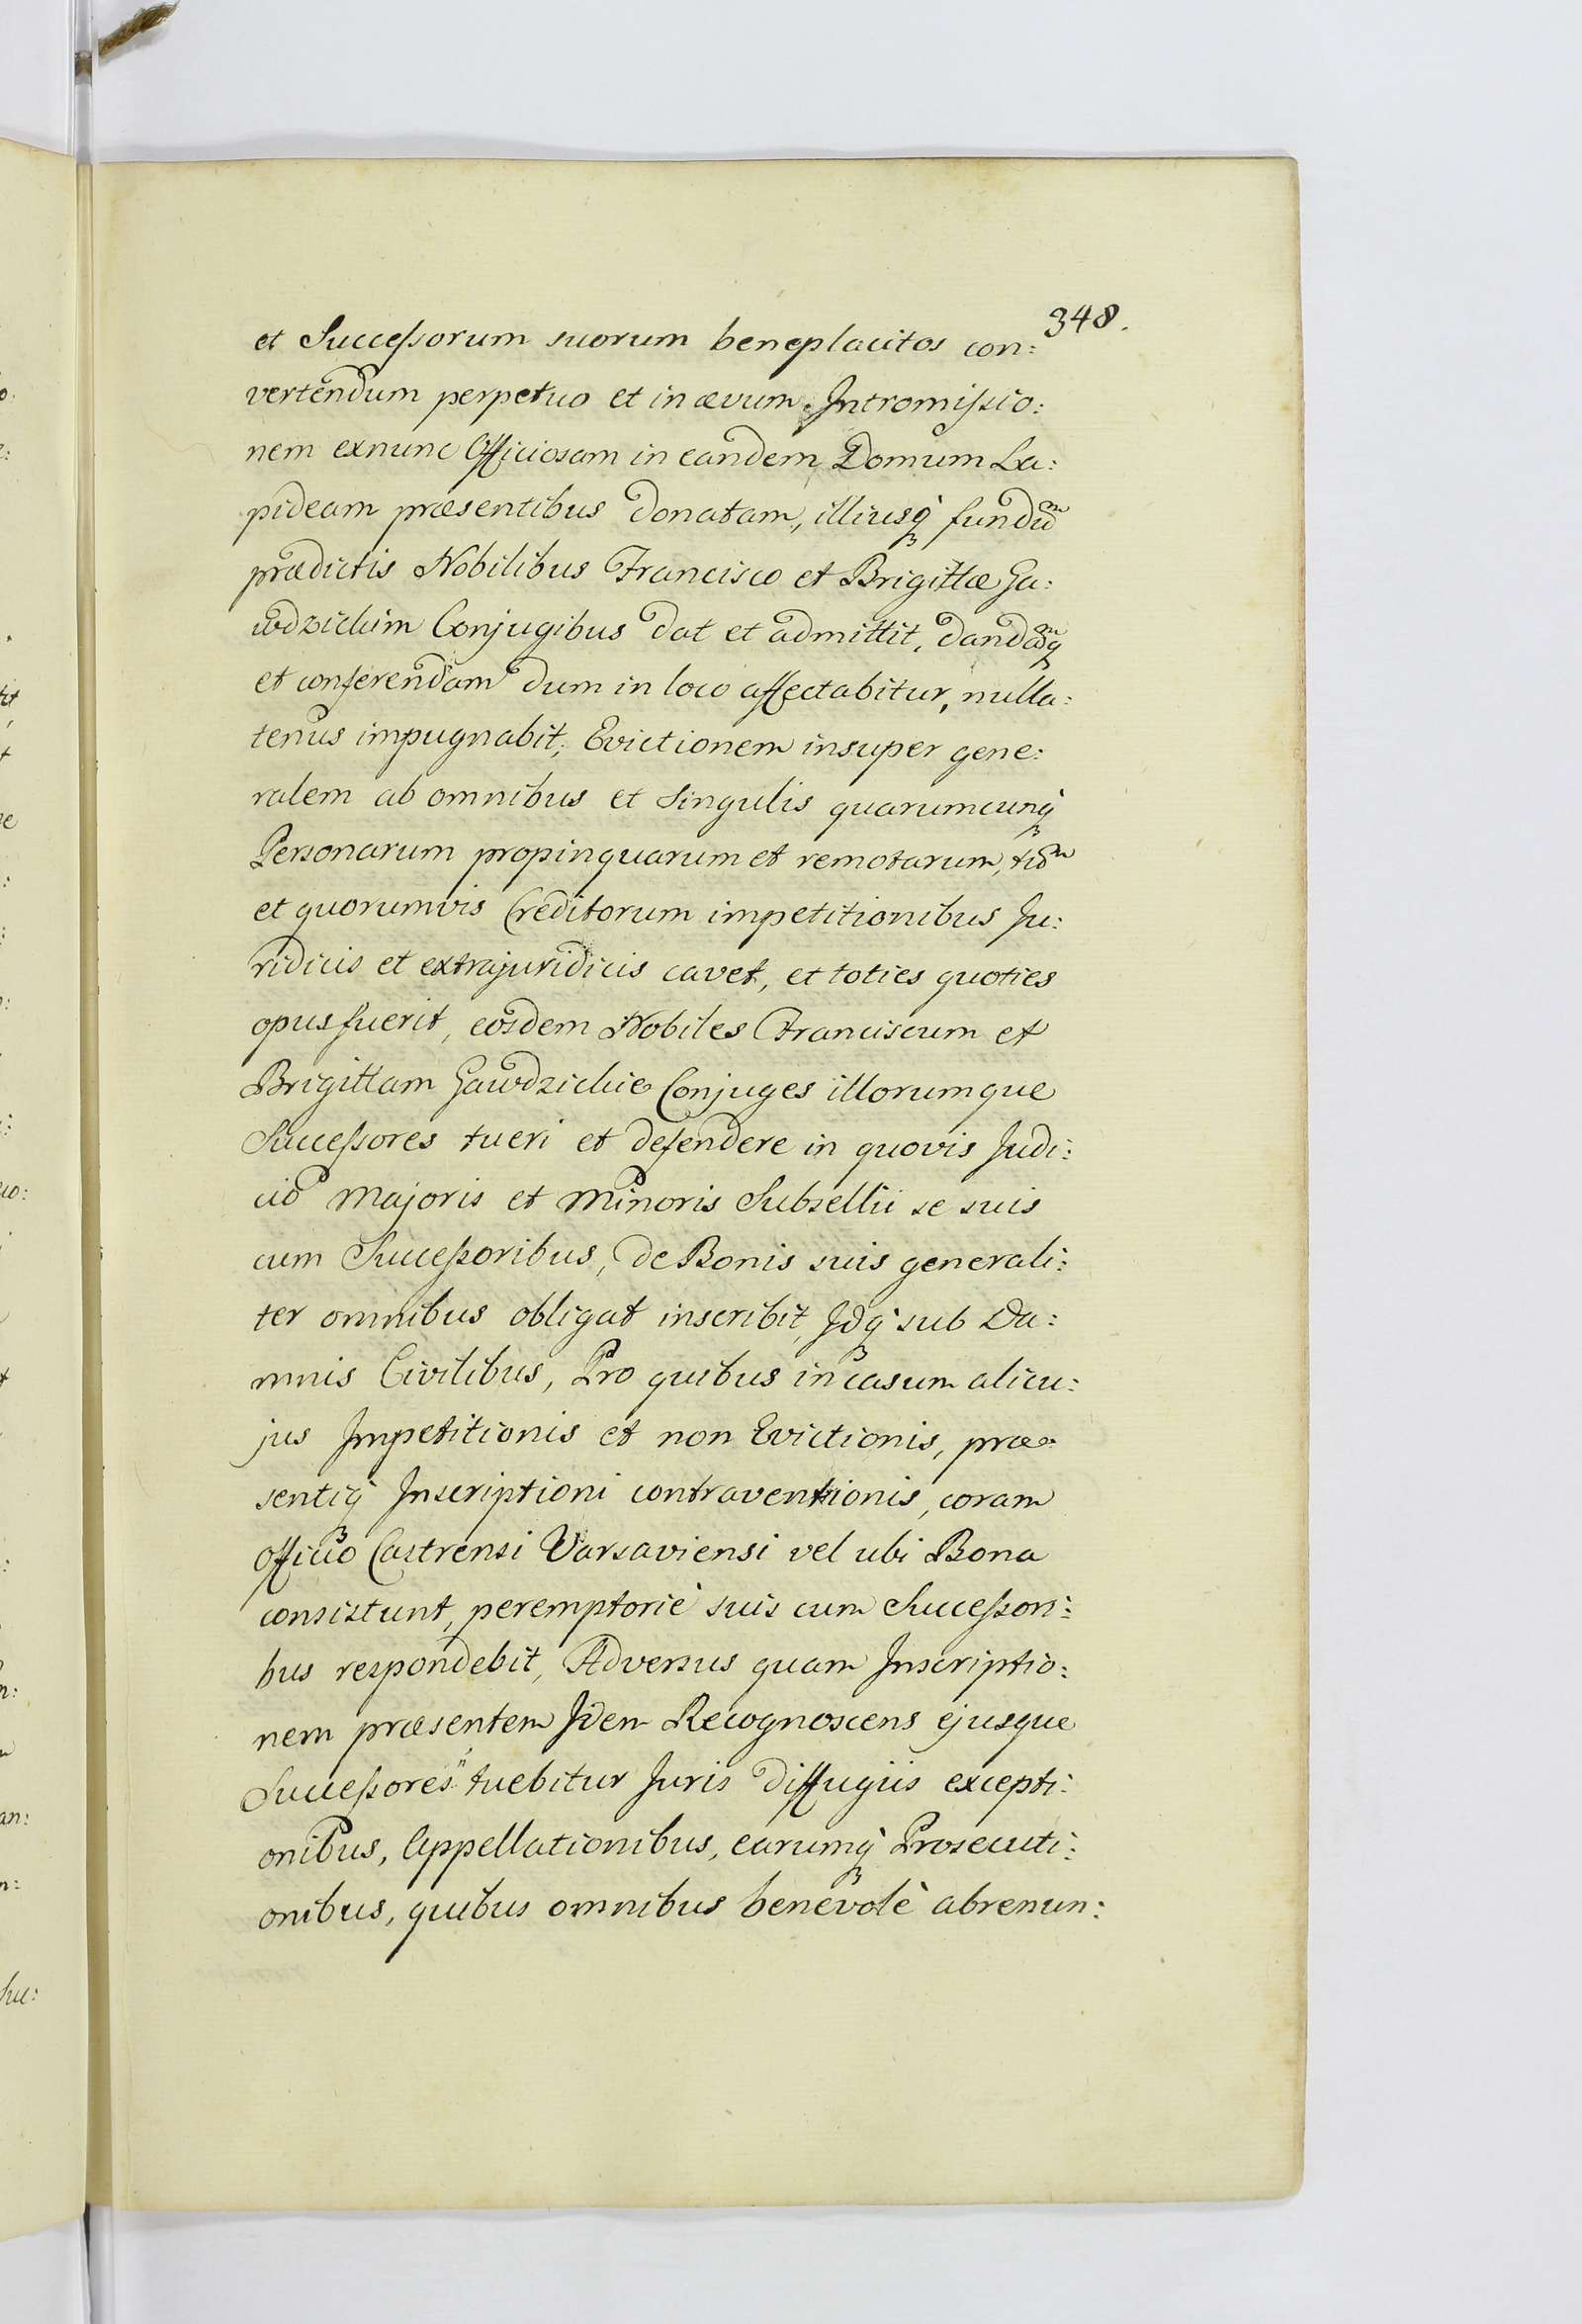 348.
et Successorum suorum beneplacitos con:
vertendum perpetuo et in ævum. Intromissio:
nem exnunc Officiosam in eandem Domum La:
pideam præsentibus donatam, illiusq̀ fundũ
prædictis Nobilibus Francisco et Brigittæ Ga:
wdzichim Conjugibus dat et admittit, dandãq
et conferendam dum in loco affectabitur, nulla:
tenus impugnabit; Evictionem insuper gene:
ralem ab omnibus et singulis quarumcunq̀
Personarum propinquarum et remotarum,
et quorumvis Creditorum impetitionibus Ju:
ridicis et extrajuridicis cavet, et toties quoties
opus fuerit, eosdem Nobiles Franciscum et
Brigittam Gawdzichie Conjuges illorumque
Successores tueri et defendere in quovis Judi:
cio Majoris et Minoris Subsellii se suis
cum Successoribus, de Bonis suis generali:
ter omnibus obligat inscribit, Idq̀ sub Da:
mnis Civilibus, Pro quibus in casum alicu:
jus Impetitionis et non Evictionis, præ:
sentiq̀ Inscriptioni contraventionis, coram
Officio Castrensi Varsaviensi vel ubi Bona
consistunt, peremptoriè suis cum Successori:
bus respondebit, Adversus quam Inscriptio:
nem præsentem Idem Recognoscens ejusque
Successores ñ tuebitur Juris diffugiis excepti:
onibus, Appellationibus, earumq̀ Prosecuti:
onibus, quibus omnibus benevolè abrenun: